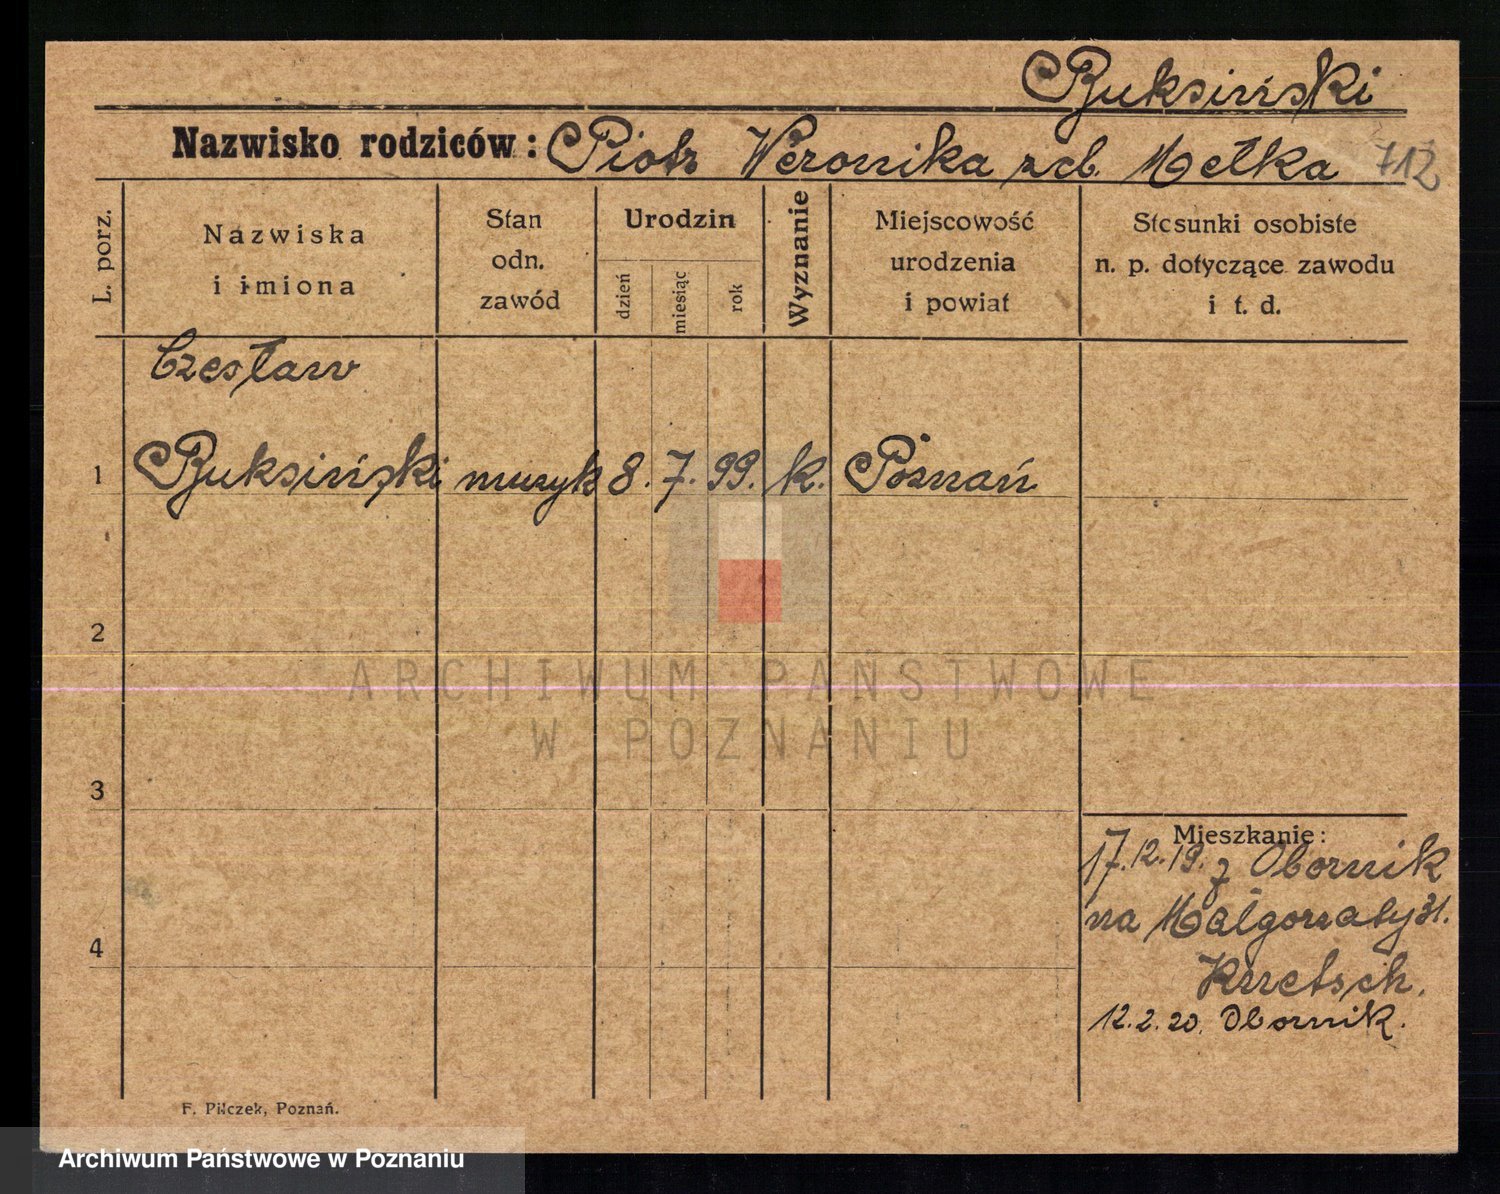 Buksiński
Nazwisko rodziców: Piotr Weronika zd. Metka 712
L. porz.
Nazwiska
i imiona
Stan
odn.
zawód
Urodzin
dzień
miesiąc
rok
Wyznanie
Miejscowość
urodzenia
i powiat
Stosunki osobiste
n. p. dotyczące zawodu
i t. d.
Czesław
1 Buksiński muzyk 8. 7. 99. k. Poznań
2
ARCHIWUM PAŃSTWOWE
W POZNANIU
3
Mieszkanie:
17.12.19. z Obornik
na Małgorzaty 31.
4
12.2.20. Obornik.
F. Pilczek, Poznań.
Archiwum Państwowe w Poznaniu